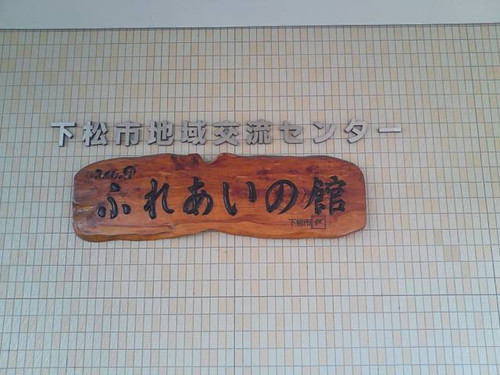 下松市地域交流センター
ふれあいの館
下松市